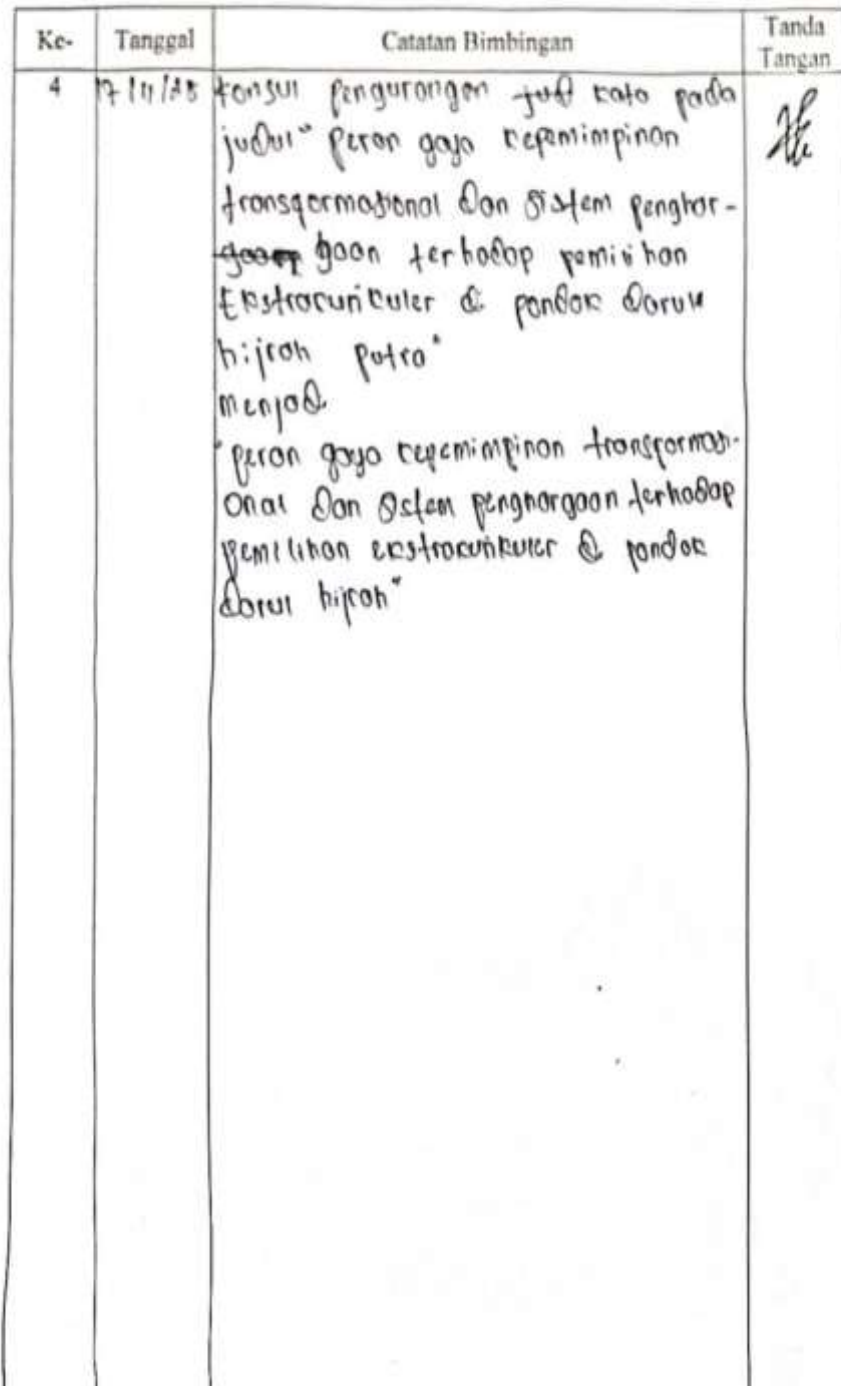 Ke- Tanggal Catatan Bimbingan Tanda Tangan
4 17/11/25 konsul pengurangan kata pada
judul "peran gaya kepemimpinan
transformasional dan sistem penghar-
gaan terhadap pemilihan
Ekstrakurikuler di pondok darul
hijrah putra"
menjadi
"peran gaya kepemimpinan transformasi-
onal dan sistem penghargaan terhadap
pemilihan ekstrakurikuler di pondok
darul hijrah"